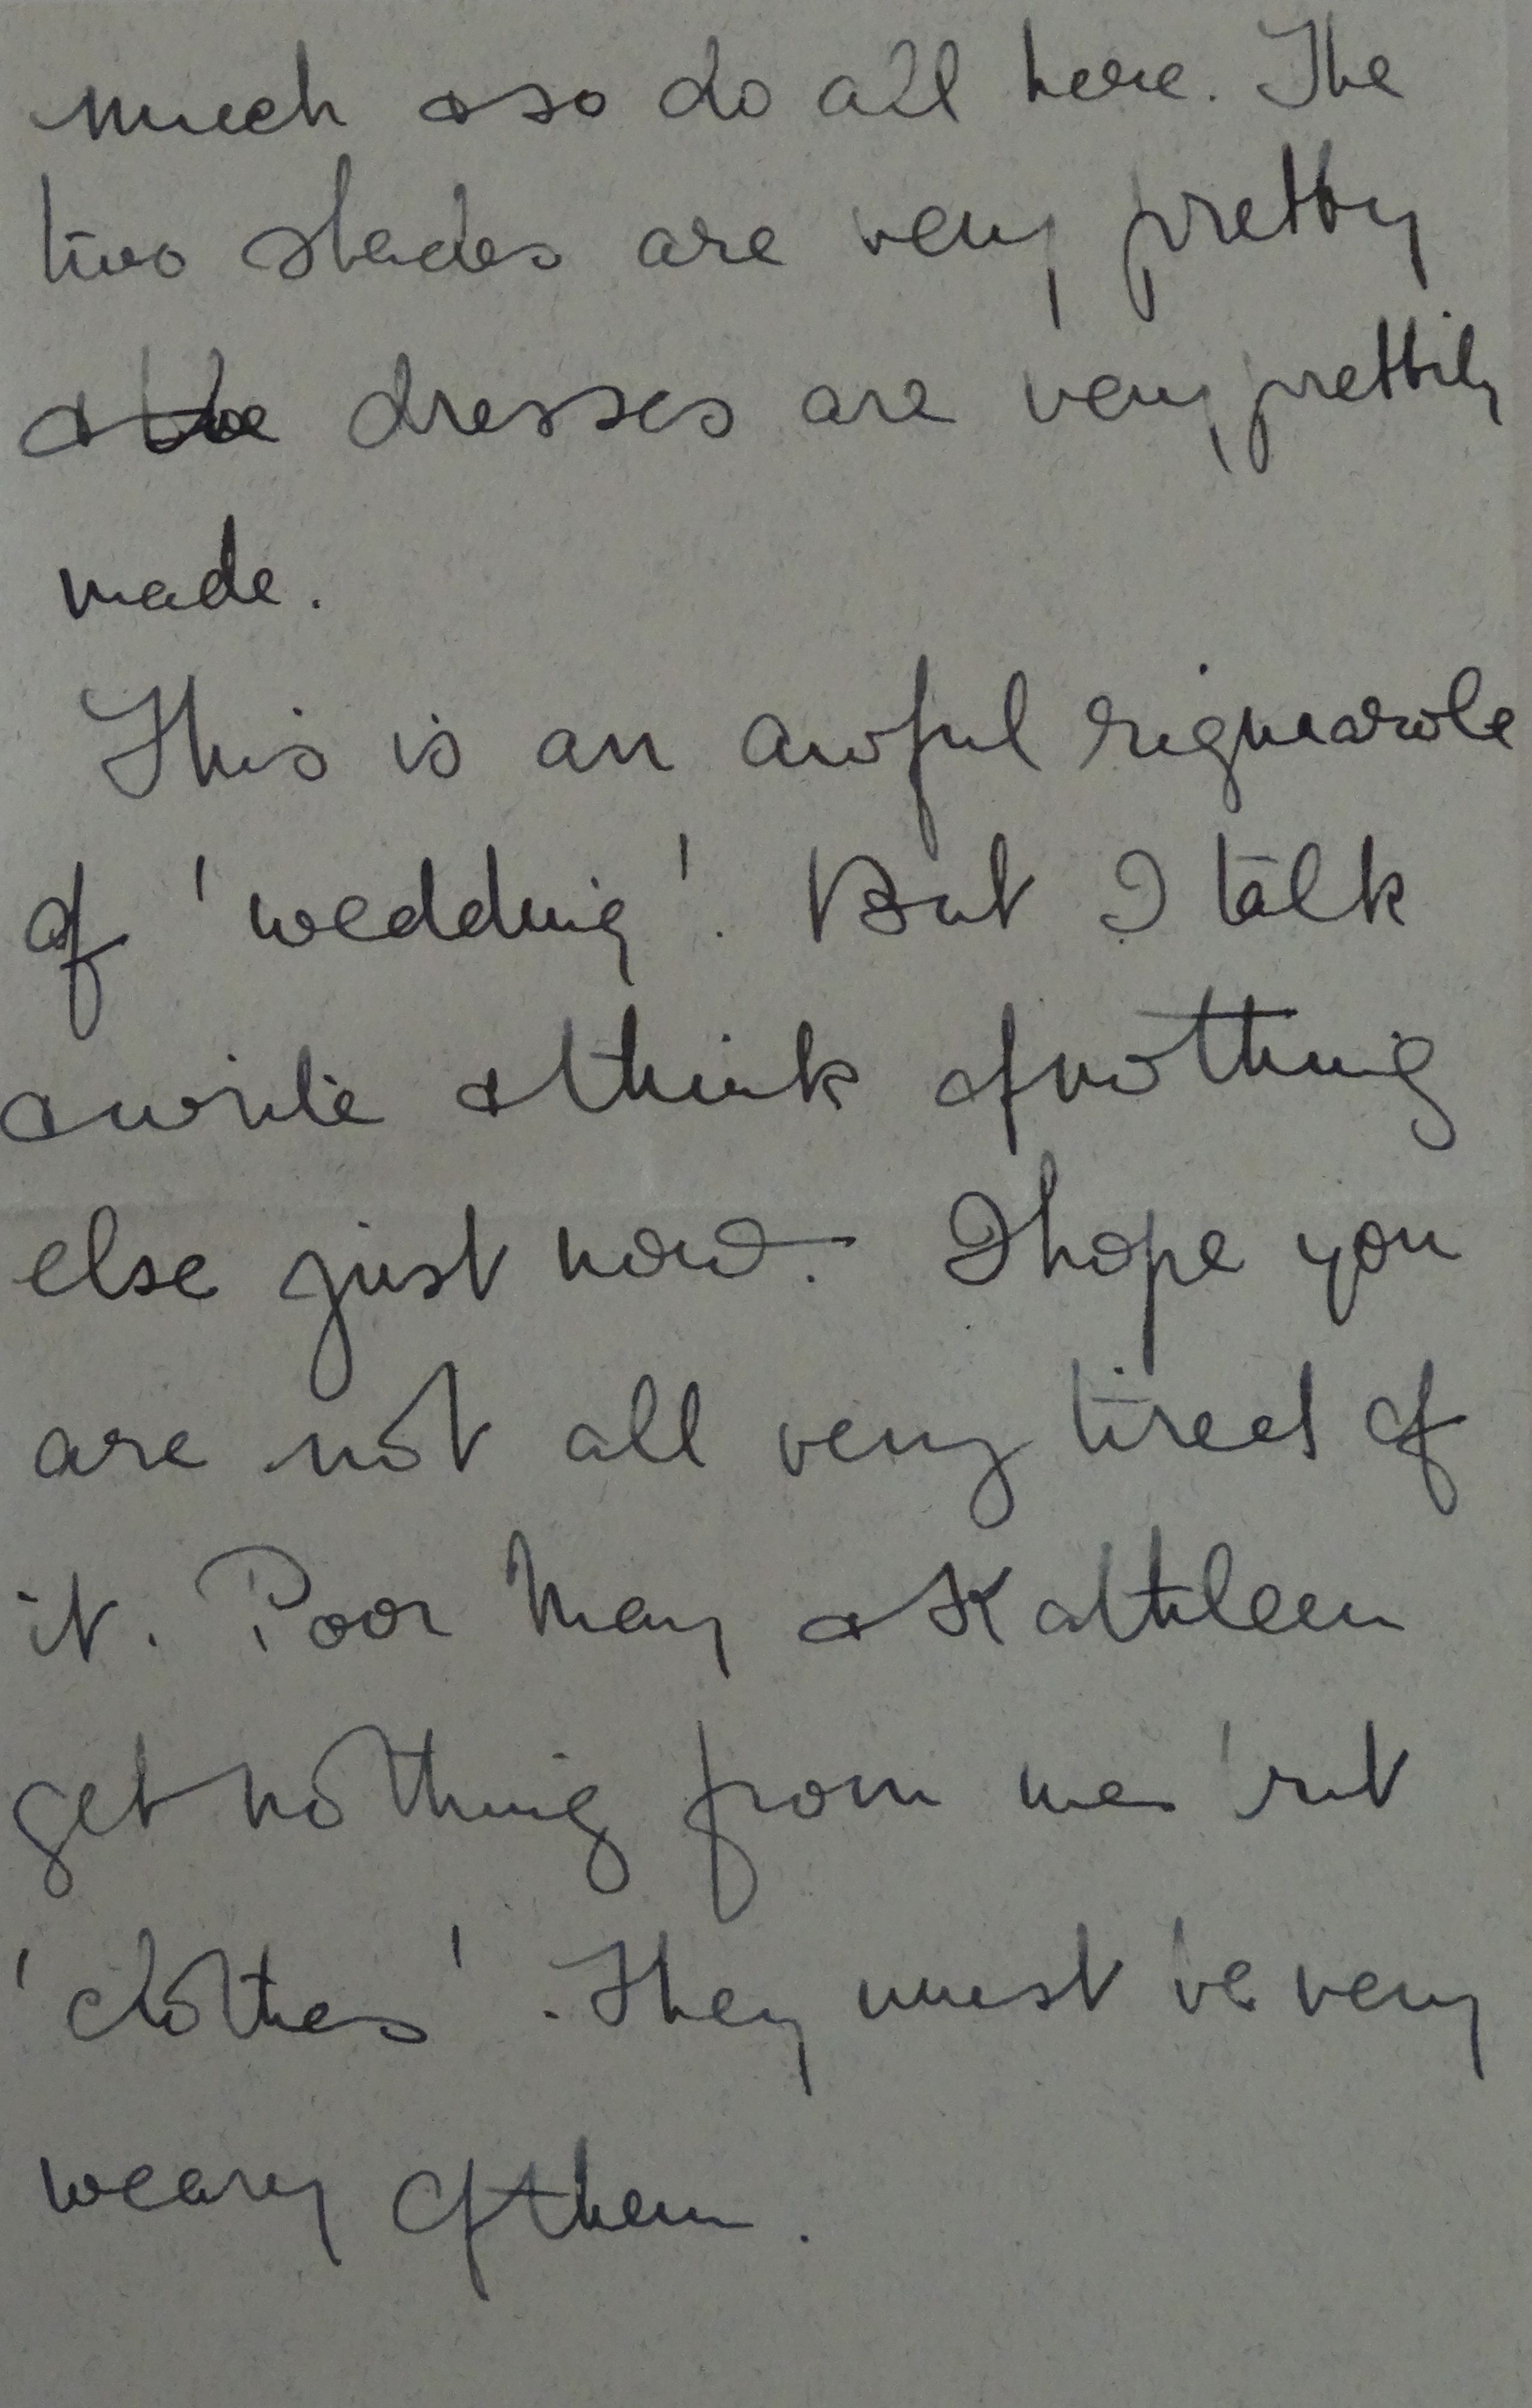 much & so do all here. The
two shades are very pretty
& the dresses are very prettily
made.
This is an awful rigmarole
of 'wedding'. But I talk
& write & think of nothing
else just now. I hope you
are not all very tired of
it. Poor May & Kathleen
get nothing from me but
'clothes'. They must be very
weary of them.